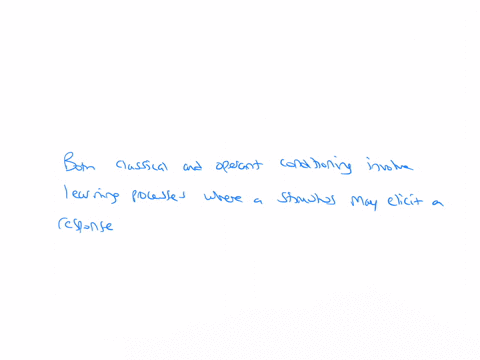 Both classical and operant conditioning involve
learning processes where a stimulus may elicit a
response